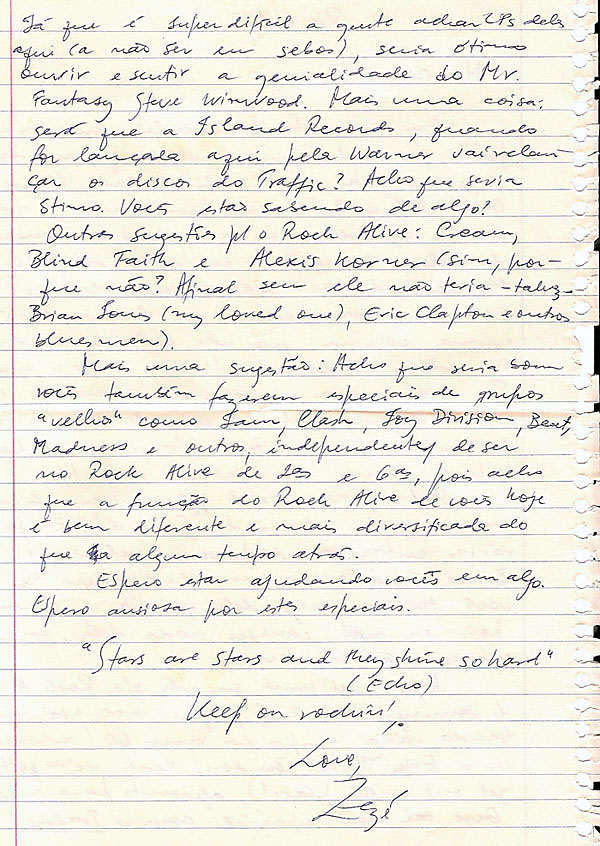 Já que é super difícil a gente achar LPs deles
aqui (a não ser em sebos), seria ótimo
ouvir e sentir a genialidade do Mr.
Fantasy Steve Winwood. Mais uma coisa:
será que a Island Records, quando
for lançada aqui pela Warner vai relan-
çar os discos do Traffic? Acho que seria
ótimo. Vocês estão sabendo de algo?
Outras sugestões p/ o Rock Alive: Cream,
Blind Faith e Alexis Korner (sim, por-
que não? Afinal sem ele não teria -talvez-
Brian Jones (my loved one), Eric Clapton e outros
bluesmen).
Mais uma sugestão: Acho que seria bom
vocês também fazerem especiais de grupos
"velhos" como Jam, Clash, Joy Division, Beat,
Madness e outros, independente de ser
no Rock Alive de 2as e 6as, pois acho
que a função do Rock Alive de vocês hoje
é bem diferente e mais diversificada do
que há algum tempo atrás.
Espero estar ajudando vocês em algo.
Espero ansiosa por estes especiais.
"Stars are stars and they shine so hard"
(Echo)
Keep on rockin'!
Love,
Zezé